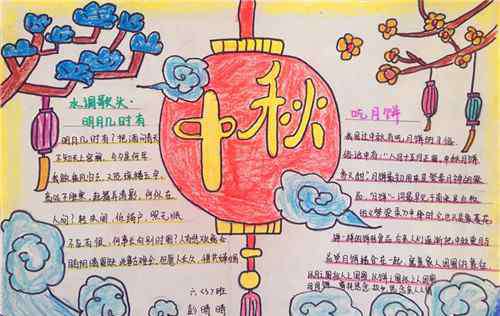 水调歌头·
明月几时有
明月几时有?把酒问青天
不知天上宫阙,今夕是何年
我欲乘风归去,又恐琼楼玉宇
高处不胜寒,起舞弄清影,何似在
人间?转朱阁,低绮户,照无眠
不应有恨,何事长向别时圆?人有悲欢离合
阴晴圆缺,此事古难全,但愿人长久,千里共婵娟
中秋
吃月饼
我国过中秋有吃月饼的习俗
俗话中有:"八月十五月正圆,中秋月饼
香又甜!月饼最初用来是祭奉月神的祭
品,"月饼"一词最早见于南宋吴自牧
的《梦粱录》中,那时,它也只是像菱花
饼一样的饼形食品。后来人们逐渐把中秋赏月与
品尝月饼结合在一起,寓意家人团圆的象征
六 班